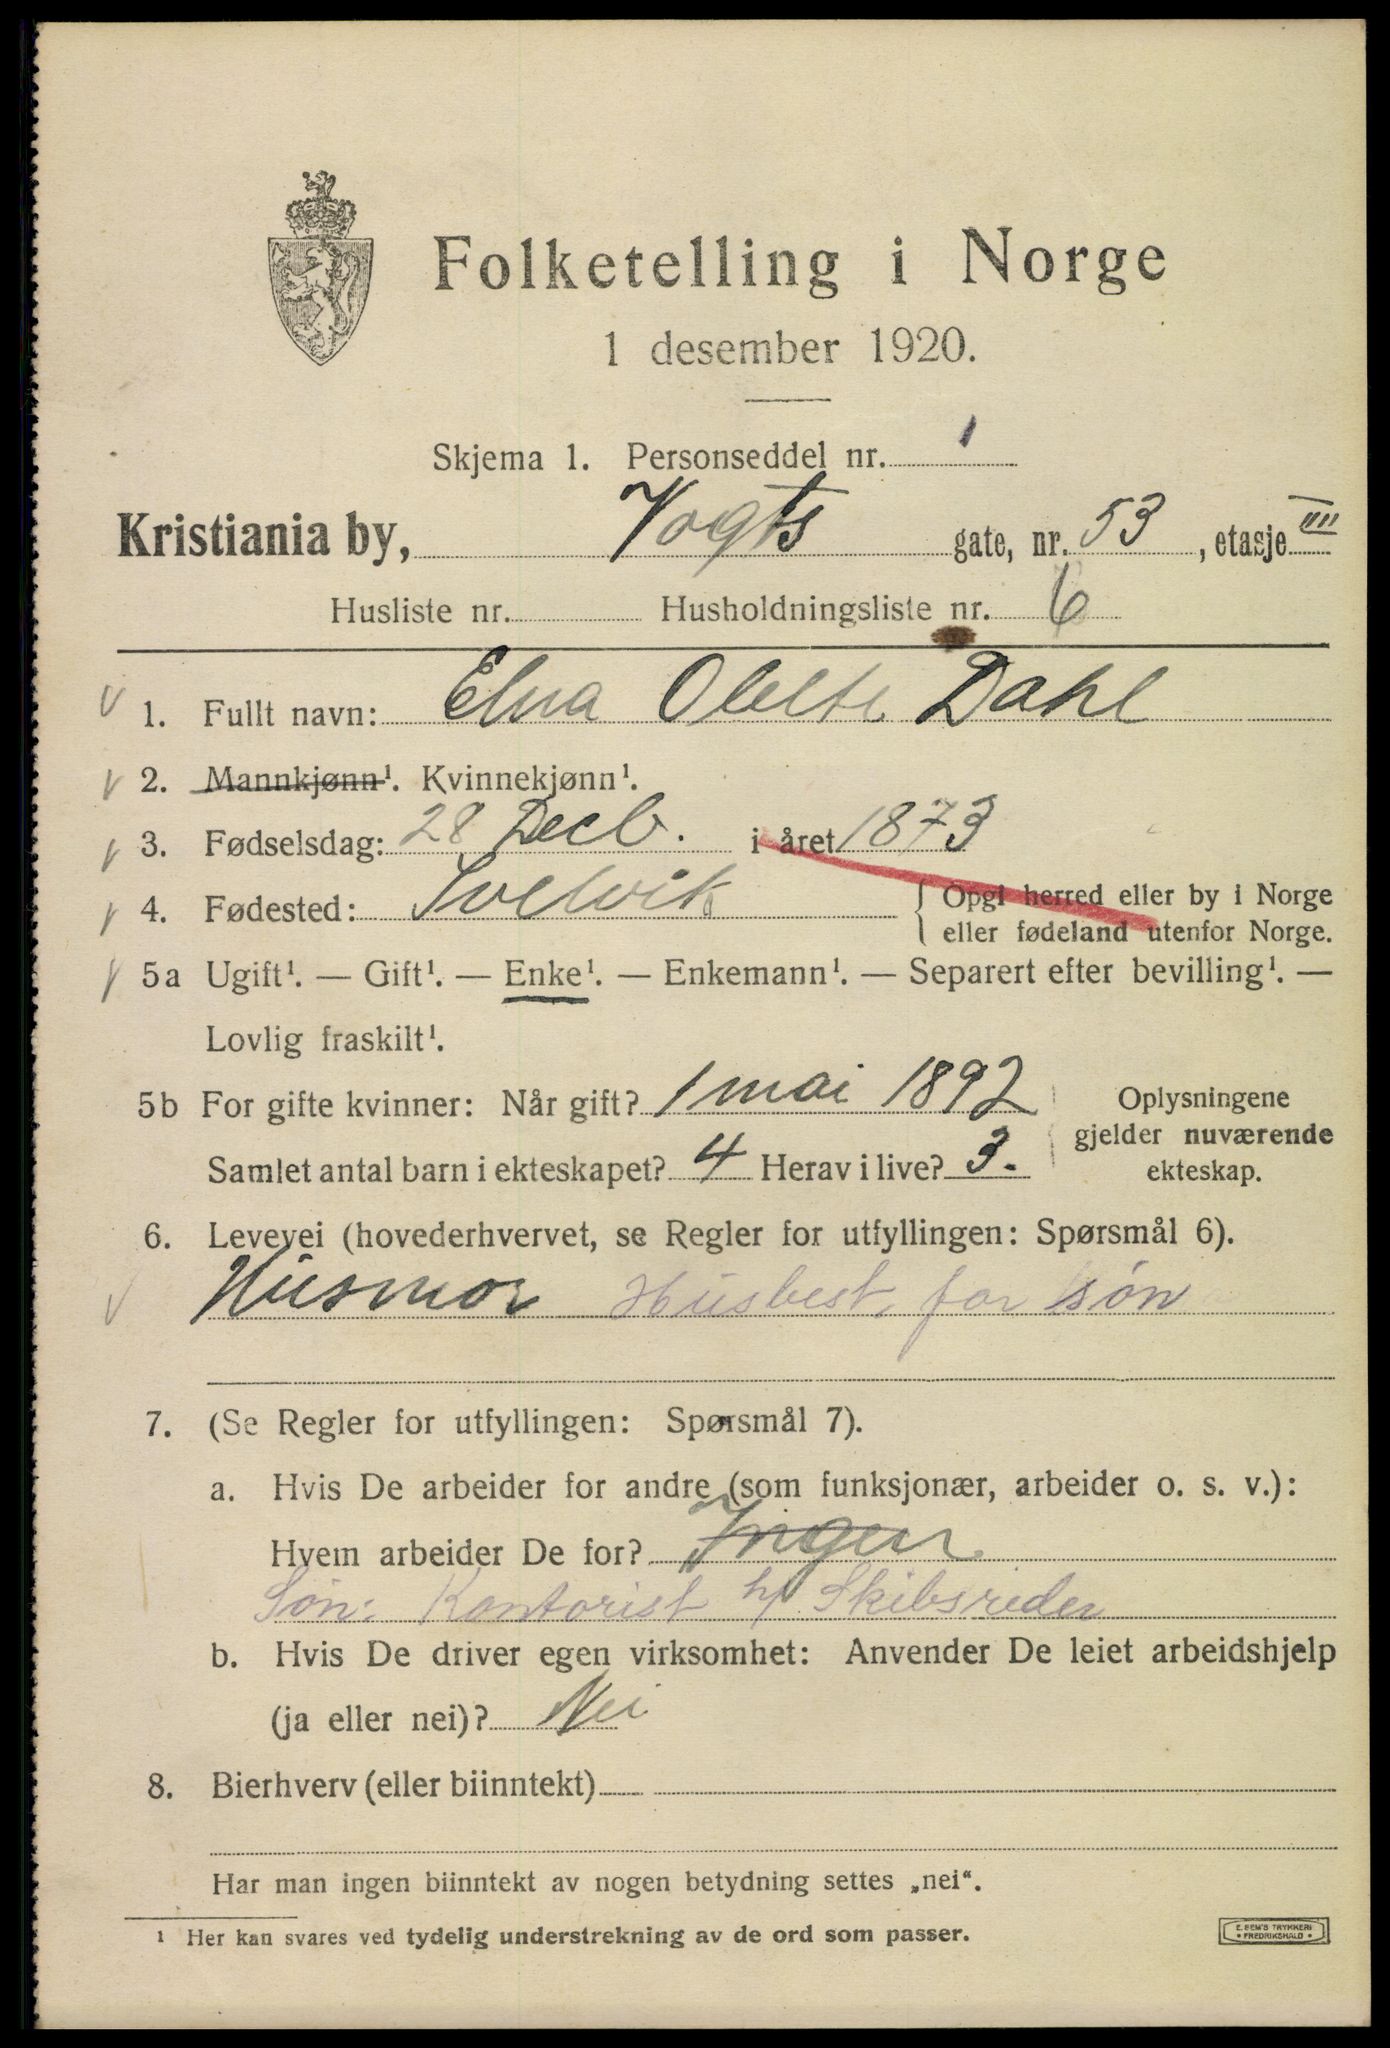 Folketelling i Norge
1 desember 1920.
Skjema 1. Personseddel nr. 1
Kristiania by, Vogts gate, nr. 53, etasje III
Husliste nr. Husholdningsliste nr. 6
1. Fullt navn: Elna Olette Dahl
2. Mannkjønn¹. Kvinnekjønn¹.
3. Fødselsdag: 28 Decb. i året 1873
4. Fødested: Svelvik { Opgi herred eller by i Norge
eller fødeland utenfor Norge.
5a Ugift¹. — Gift¹. — Enke¹. — Enkemann¹. — Separert efter bevilling¹. —
Lovlig fraskilt¹.
5b For gifte kvinner: Når gift? 1 mai 1892
Samlet antal barn i ekteskapet? 4 Herav i live? 3.
Oplysningene
gjelder nuværende
ekteskap.
6. Levevei (hovederhvervet, se Regler for utfyllingen: Spørsmål 6).
Husmor Husbest. for søn
7. (Se Regler for utfyllingen: Spørsmål 7).
a. Hvis De arbeider for andre (som funksjonær, arbeider o. s. v.):
Hvem arbeider De for? Ingen
Søn: Kontorist h/ Skibsreder
b. Hvis De driver egen virksomhet: Anvender De leiet arbeidshjelp
(ja eller nei)? Nei
8. Bierhverv (eller biinntekt)
Har man ingen biinntekt av nogen betydning settes „nei“.
¹ Her kan svares ved tydelig understrekning av de ord som passer.
E. SEM'S TRYKKERI
• FREDRIKSHALD •